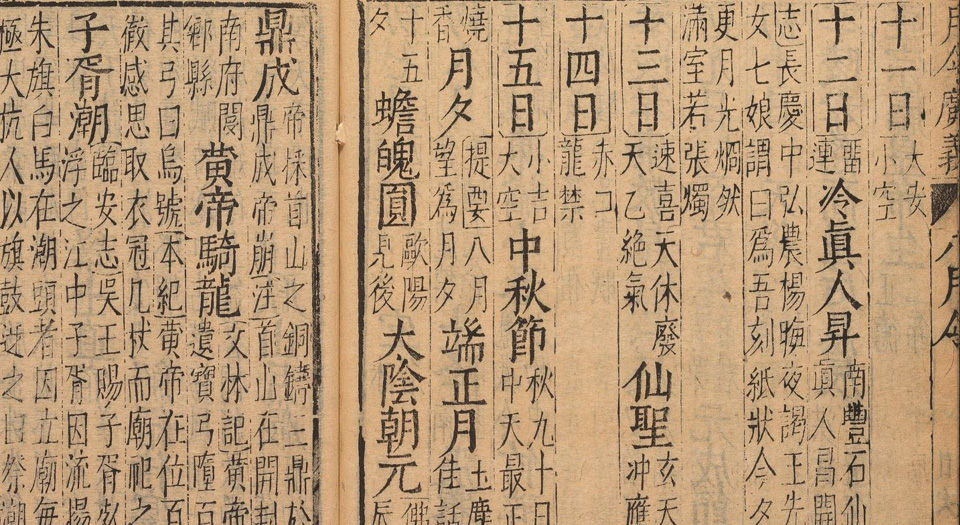 月令廣義 八月令
十一日 大安
小空
十二日 留連 冷真人昇 南豐石仙
真人昌開
志長慶中弘農楊晦夜謁王先
女七娘謂曰為吾刻紙狀今夕
更月光烱然
滿室若張燭
十三日 速喜天休廢
天乙絕氣 仙聖 玄天
冲應
十四日 赤口
龍禁
十五日 小吉
大空 中秋節 秋九十日
中天最正
燒
香 月夕 提要八月
望為月夕 端正月 土塵
佳話
十五
夕 蟾魄圓 歐陽
見後 大陰朝元 佛
辰
鼎成 帝採首山之銅鑄三鼎於
鼎成帝崩注首山在開封
南府閿
鄉縣 黃帝騎龍 文林記黃帝
遺寶弓墮百
其弓曰烏號本紀黃帝在位百
徹感思取衣冠几杖而廟祀之
子胥潮 臨安志吳王賜子胥死
浮之江中子胥因流揚
朱旗白馬在潮頭者因立廟每
極大杭人以旗鼓迓之 祭潮